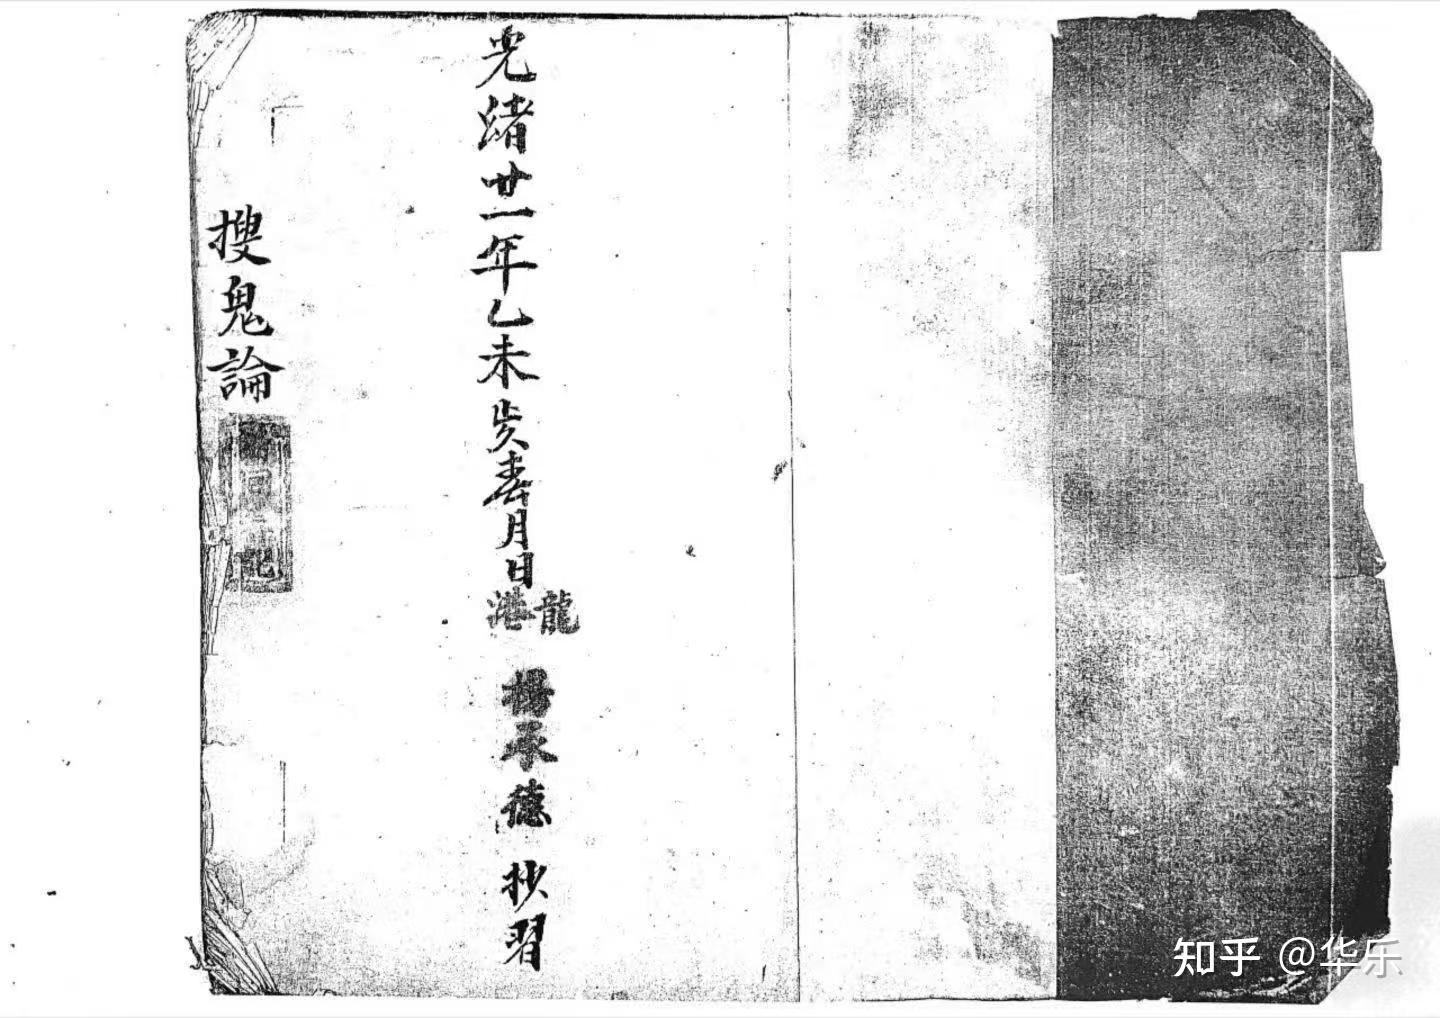 光緒廿一年乙未歲春月日龍港 楊承德 抄習
搜鬼論
知乎 @华乐